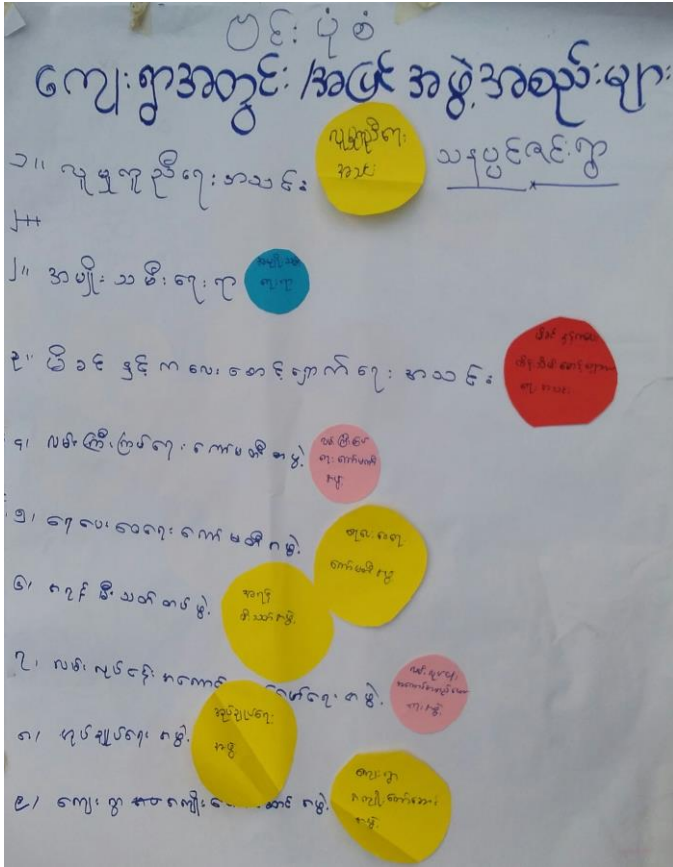 ဗင်းပုံစံ
ကျေးရွာအတွင်း/အပြင် အဖွဲ့အစည်းများ
သနပ္ပင်ဇင်းရွာ
၁။ လူမှုကူညီရေးအသင်း
လူမှုကူညီရေး
အသင်း
၂။ အမျိုးသမီးရေးရာ
အမျိုးသမီး
ရေးရာ
၃။ မိခင်နှင့်ကလေးစောင့်ရှောက်ရေးအသင်း
၄။ လမ်းကြီးကြပ်ရေးကော်မတီအဖွဲ့
လမ်းကြီးကြပ်
ရေးကော်မတီ
အဖွဲ့
၅။ ရေပေးဝေရေးကော်မတီအဖွဲ့
ကော်မတီအဖွဲ့
၆။ အရန်မီးသတ်တပ်ဖွဲ့
အရန်
မီးသတ်အဖွဲ့
၇။ လမ်းလုပ်ငန်းအကောင် ဖော်ရေးအဖွဲ့
၈။ အုပ်ချုပ်ရေးအဖွဲ့
အုပ်ချုပ်ရေး
အဖွဲ့
၉။ ကျေးရွာ အကျိုး ဆောင်အဖွဲ့
ကျေးရွာ
အကျိုးတော်ဆောင်
အဖွဲ့